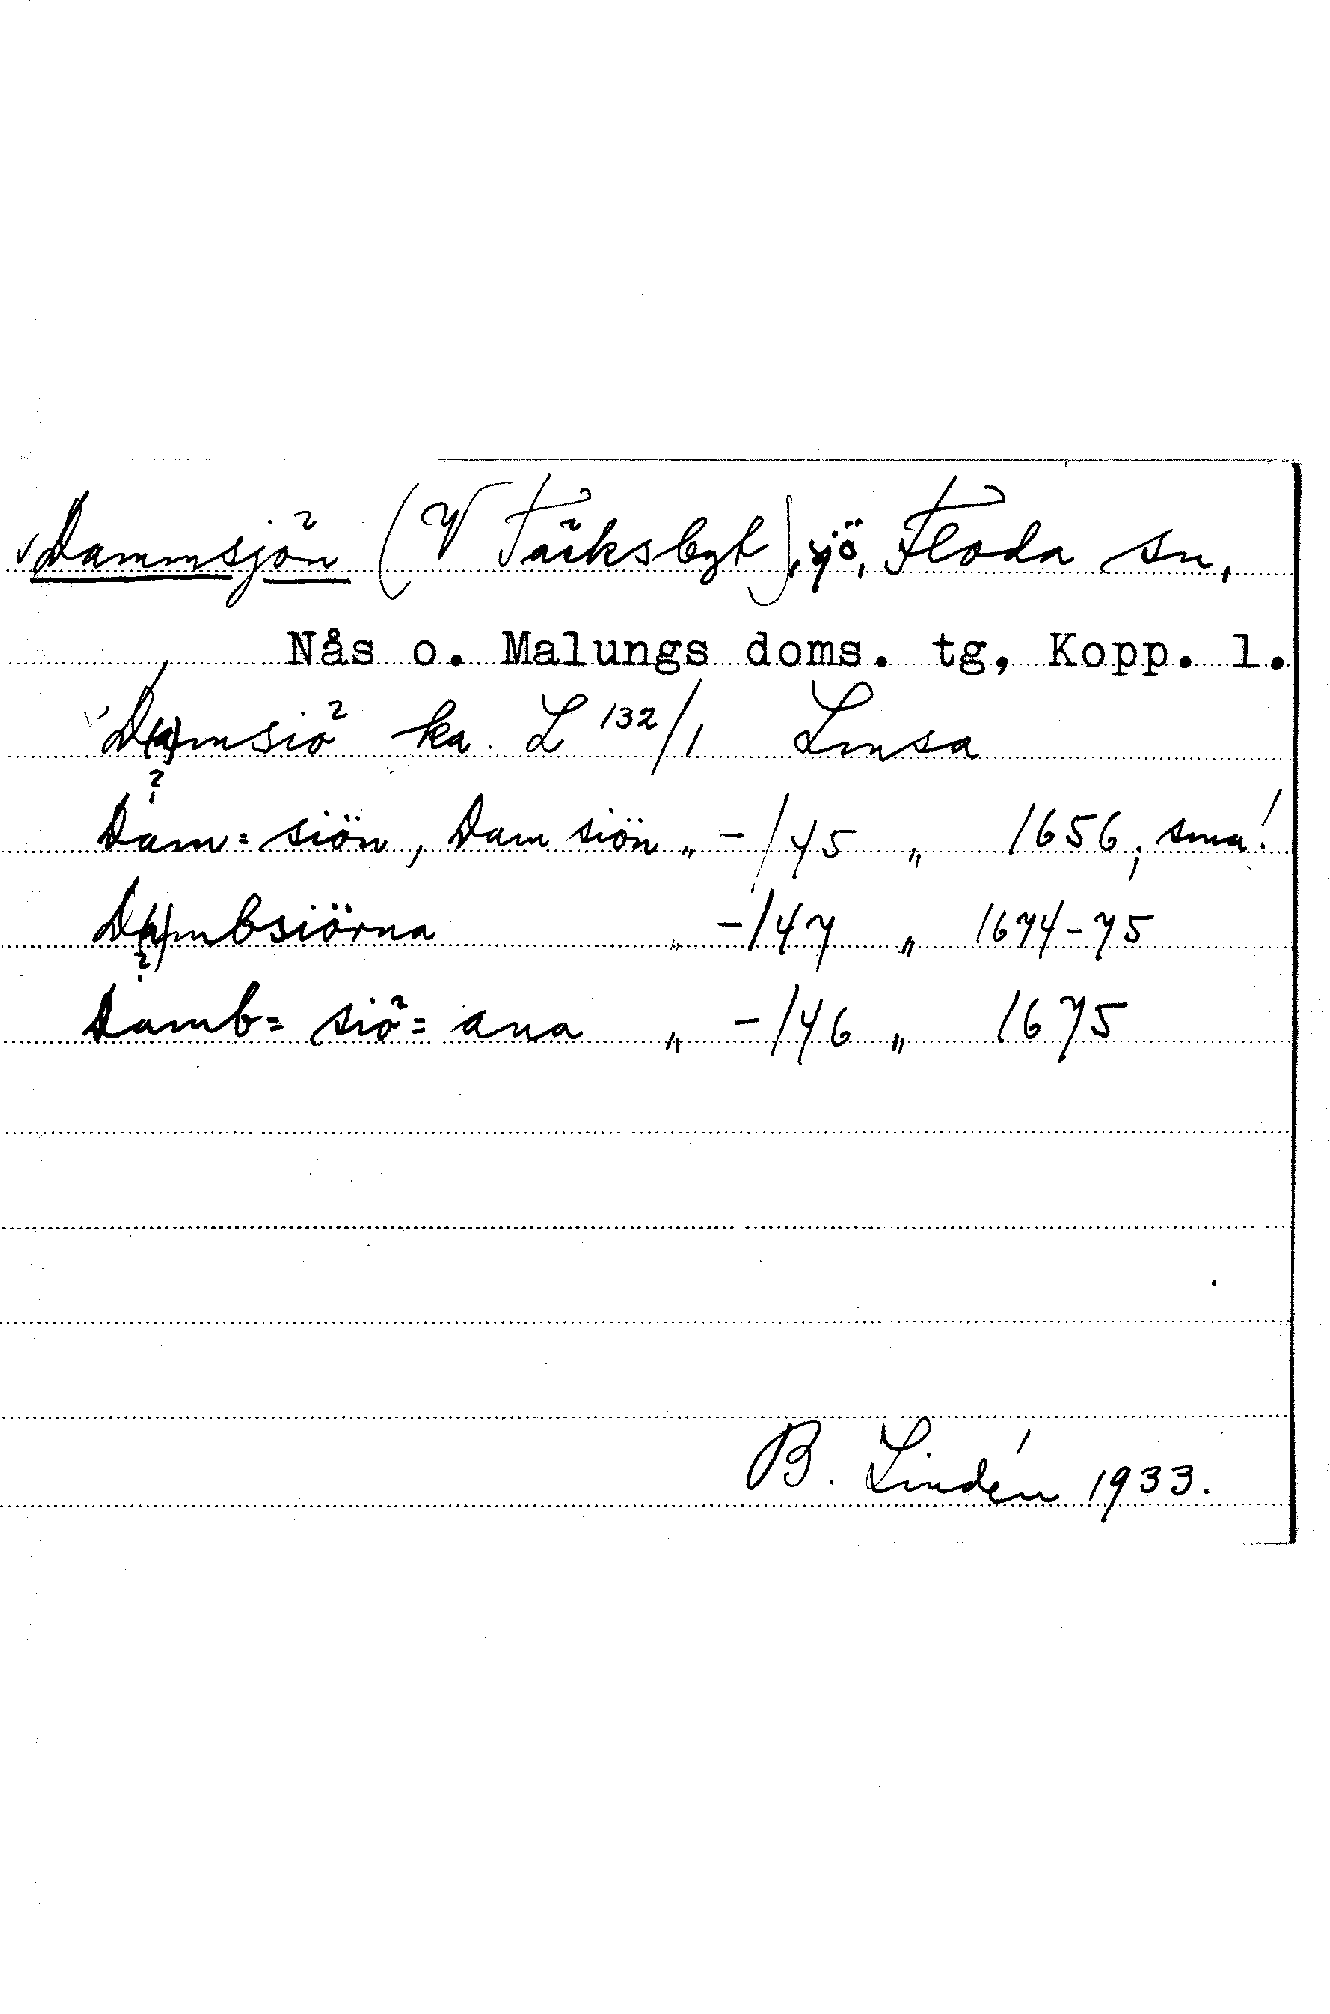 Dammsjön (V Fäksbyt), sjö, Floda sn,
Nås o. Malungs doms. tg, Kopp. l.
D(a)msiö ka. L 132/1 Lmsa
?
Dam= siön, Dam siön „ -/45 „ 1656, sma!
D(a)mbsiörna „ -/47 „ 1674-75
?
Damb= siö= ana „ -/46 „ 1675
B. Lindén 1933.